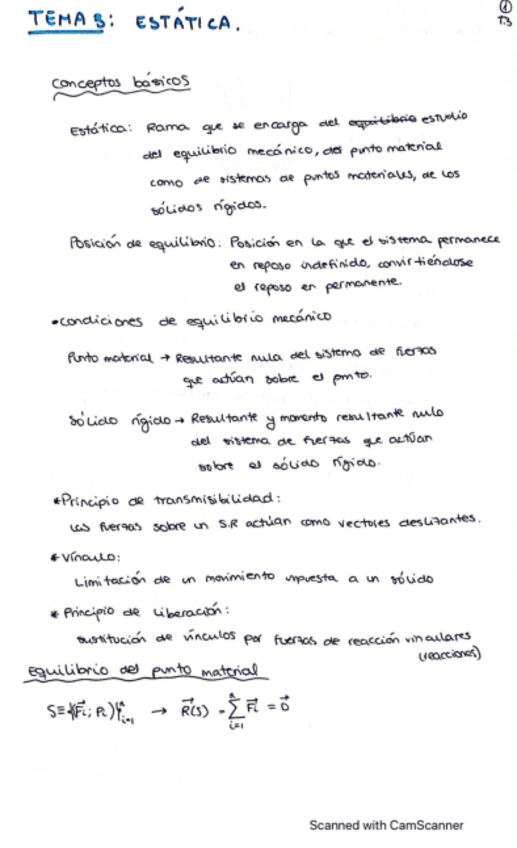 TEMA 3: ESTÁTICA.
①
T.3
Conceptos básicos
Estática: Rama que se encarga del equilibrio estudio
del equilibrio mecánico, del punto material
como de sistemas de puntos materiales, de los
sólidos rígidos.
Posición de equilibrio: Posición en la que el sistema permanece
en reposo indefinido, convirtiéndose
el reposo en permanente.
•condiciones de equilibrio mecánico
Punto material → Resultante nula del sistema de fuerzas
que actúan sobre el punto.
Sólido rígido → Resultante y momento resultante nulo
del sistema de fuerzas que actúan
sobre el sólido rígido.
*Principio de transmisibilidad:
Las fuerzas sobre un S.R actúan como vectores deslizantes.
*Vínculo:
Limitación de un movimiento impuesta a un sólido
* Principio de Liberación:
sustitución de vínculos por fuerzas de reacción vinculares
(reacciones)
Equilibrio del punto material
S≡{(F⃗i; Pi)}ⁿi=1 → R⃗(S) = Σⁿi=1 F⃗i = 0⃗
Scanned with CamScanner